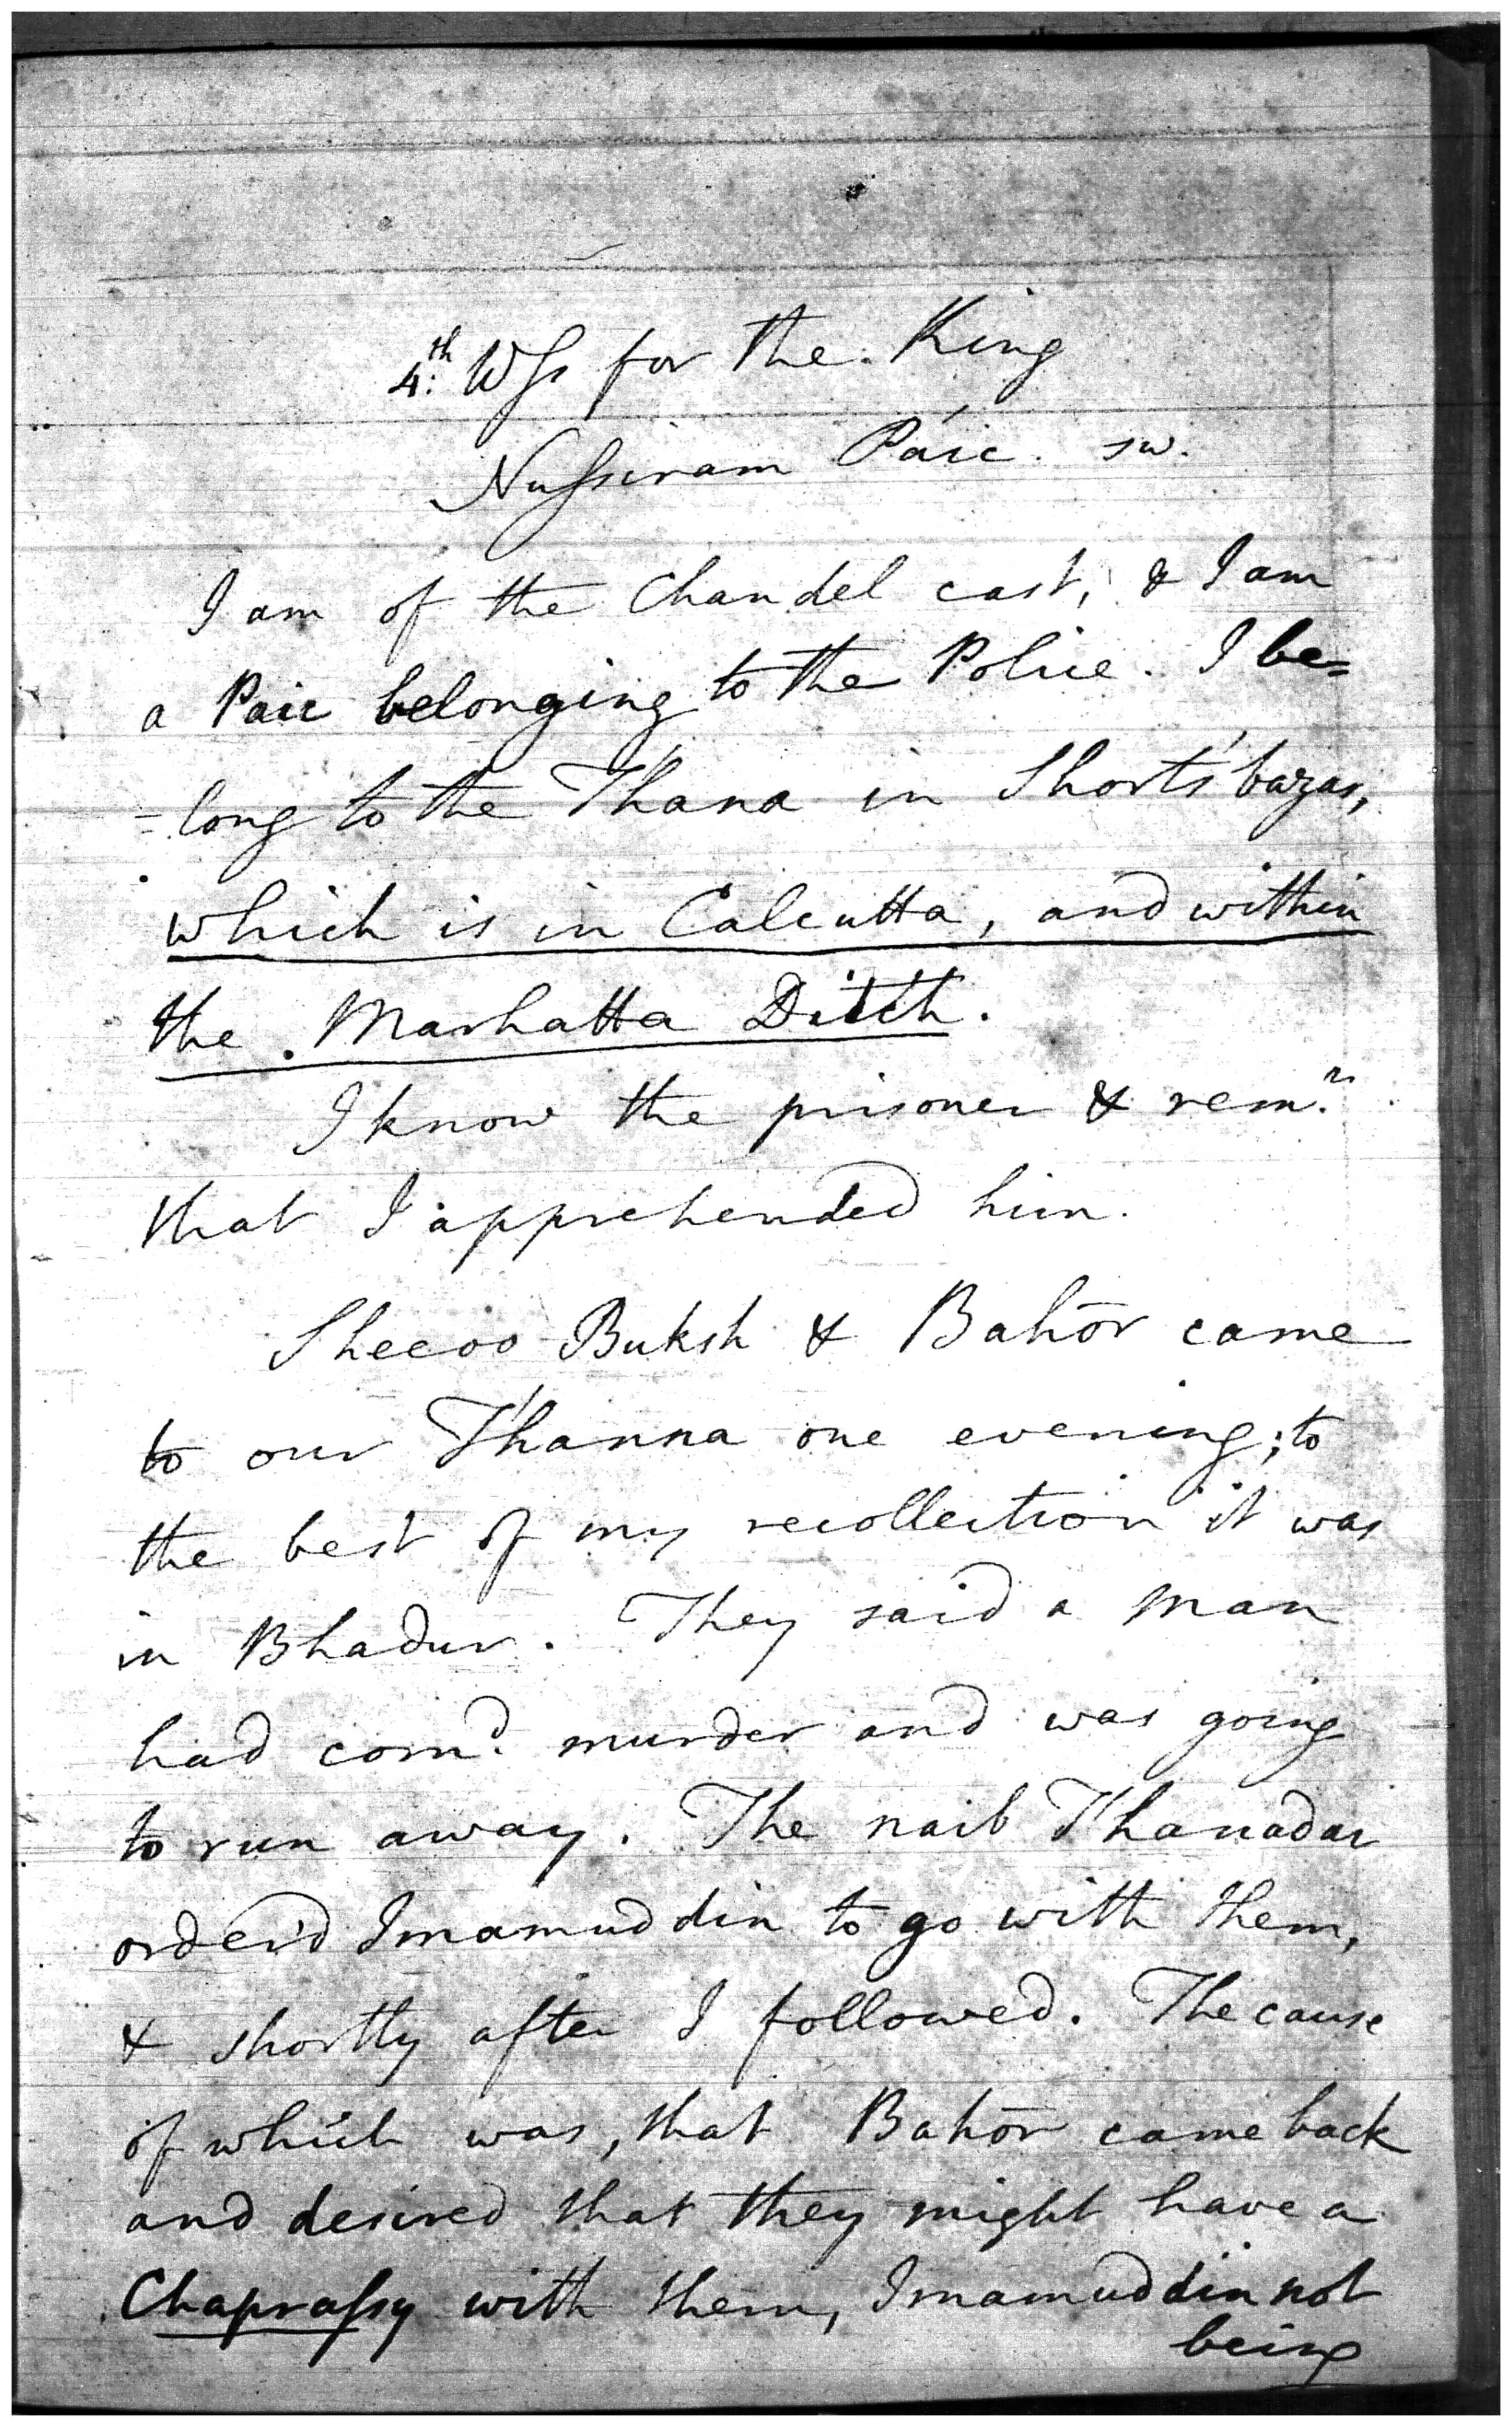 4th: Wss for the King
Nussiram Páic. sw.
I am of the Chandel cast, & I am
a Paic belonging to the Police. I be=
=long to the Thana in Short's bazar,
which is in Calcutta, and within
the Marhatta Ditch.
I know the prisoner & rem.r
that I apprehended him.
Sheeoo Buksh & Bahōr came
to our Thanna one evening; to
the best of my recollection it was
in Bhadur. They said a man
had com.d murder and was going
to run away. The naib Thanadar
order'd Imamuddin to go with them,
& shortly after I followed. The cause
of which was, that Bahōr came back
and desired that they might have a
Chaprassy with them, Imamuddin not
being